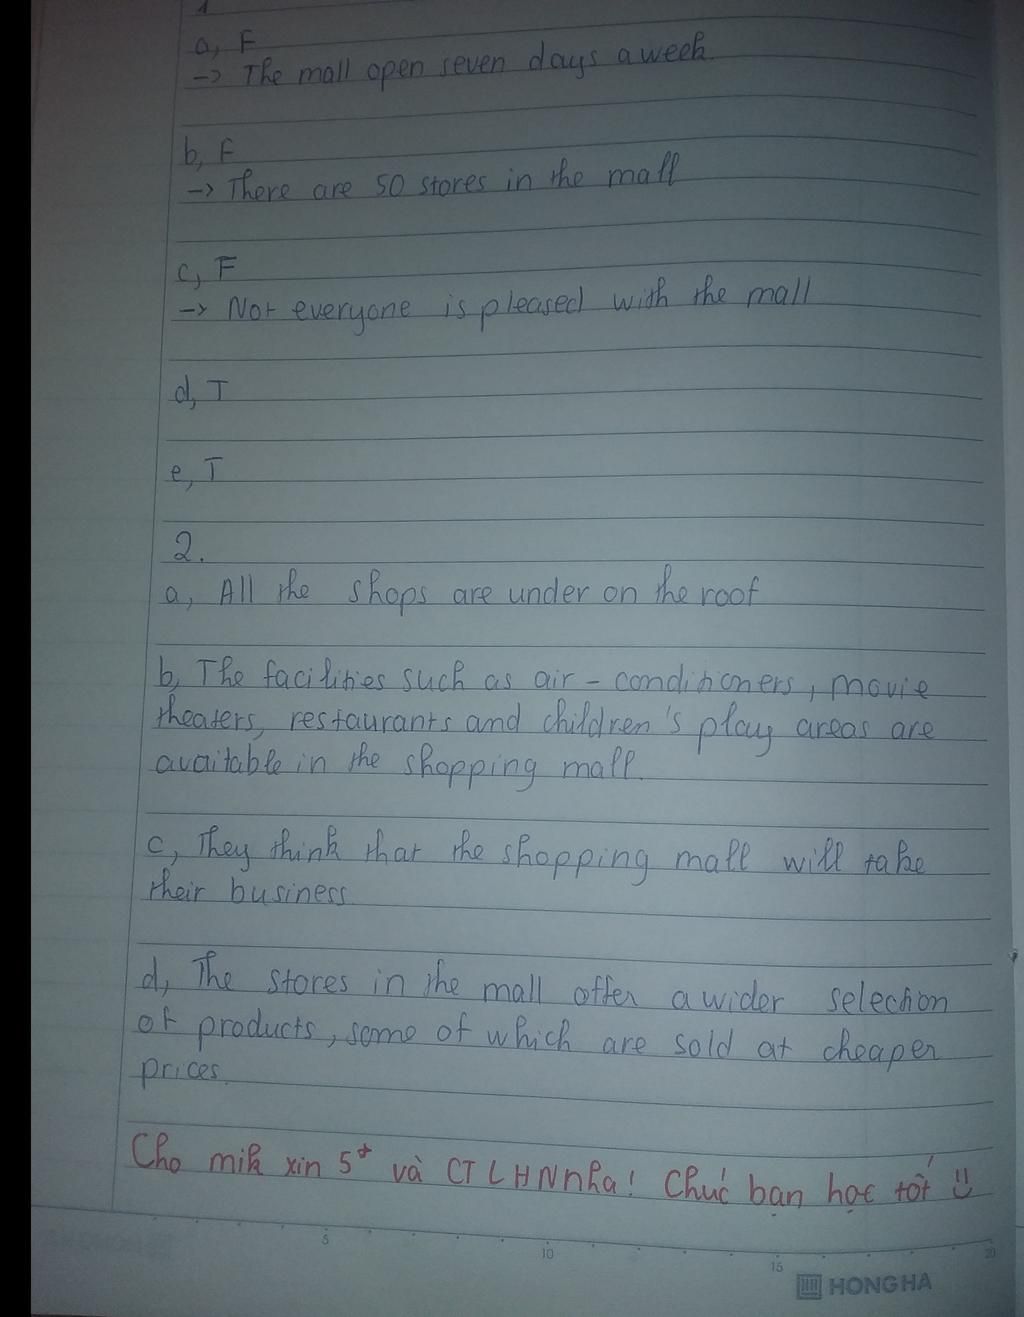 1
a, F
-> The mall open seven days a week.
b, F
-> There are 50 stores in the mall
c, F
-> Not everyone is pleased with the mall
d, T
e, T
2.
a, All the shops are under on the roof
b, The facilities such as air - conditioners, movie
theaters, restaurants and children's play areas are
available in the shopping mall.
c, They think that the shopping mall will take
their business
d, The stores in the mall offer a wider selection
of products, some of which are sold at cheaper
prices.
Cho mik xin 5* và CTLHNnha! Chúc bạn học tốt
5 10 15 20
HONG HA